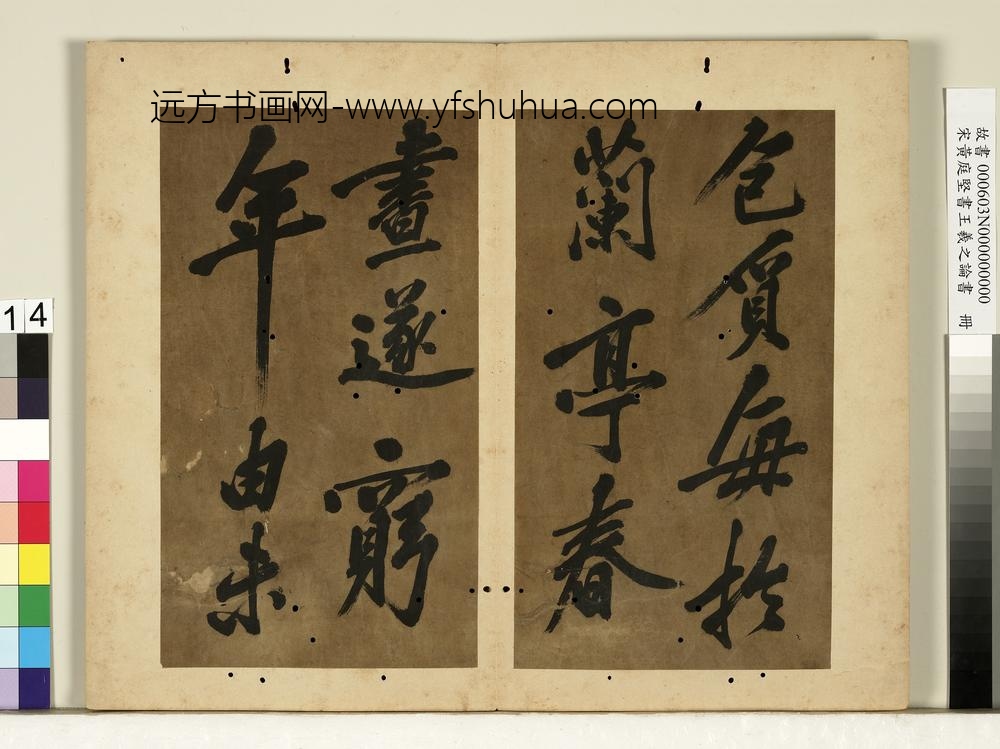 远方书画网-www.yfshuhua.com
包質每於
蘭亭春
晝遂窮
年由未
故書 000603N000000000
宋黃庭堅書王羲之論書 冊
14